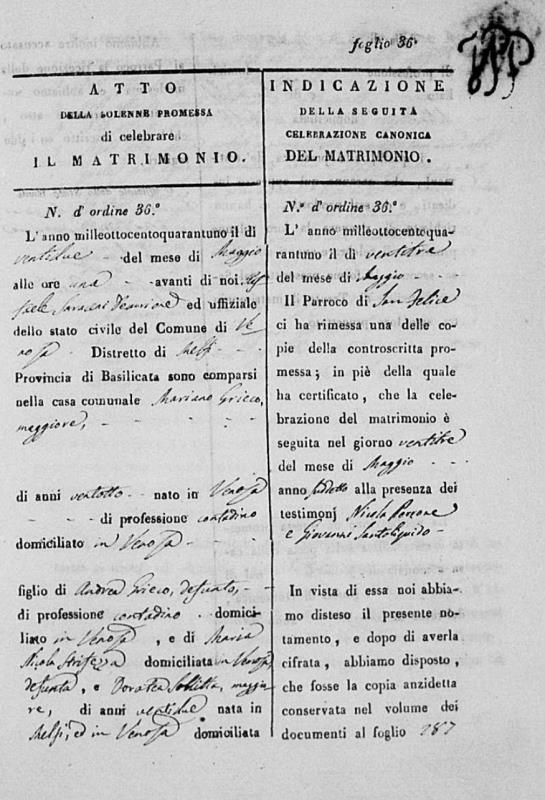 foglio 36.
ATTO
DELLA SOLENNE PROMESSA
di celebrare
IL MATRIMONIO.
N. d'ordine 36.°
L'anno milleottocentoquarantuno il di
ventidue - del mese di Maggio
alle ore una - avanti di noi
Saraceni ed uffiziale
dello stato civile del Comune di Ve
nosa - Distretto di Melfi - - -
Provincia di Basilicata sono comparsi
nella casa comunale Mariano Grieco,
maggiore, - - -
di anni ventotto - - nato in Venosa
- - di professione contadino
domiciliato in Venosa - - -
figlio di Andrea Grieco, defunto, - -
di professione contadino - domici-
liato in Venosa - , e di Maria
Nicola domiciliata in Venosa,
defunta, e Dorotea maggio
re, di anni ventidue nata in
Melfi, ed in Venosa domiciliata
INDICAZIONE
DELLA SEGUITA
CELEBRAZIONE CANONICA
DEL MATRIMONIO.
N.° d'ordine 36.°
L' anno milleottocentoqua-
rantuno il di ventitre
del mese di Maggio - - -
Il Parroco di San Felice
ci ha rimessa una delle co-
pie della controscritta pro-
messa; in piè della quale
ha certificato, che la cele-
brazione del matrimonio è
seguita nel giorno ventitre
del mese di Maggio - - -
anno suddetto alla presenza dei
testimonj Nicola Perrone
e Giovanni Santoliquido -
In vista di essa noi abbia-
mo disteso il presente no-
tamento, e dopo di averla
cifrata, abbiamo disposto,
che fosse la copia anzidetta
conservata nel volume dei
documenti al foglio 287